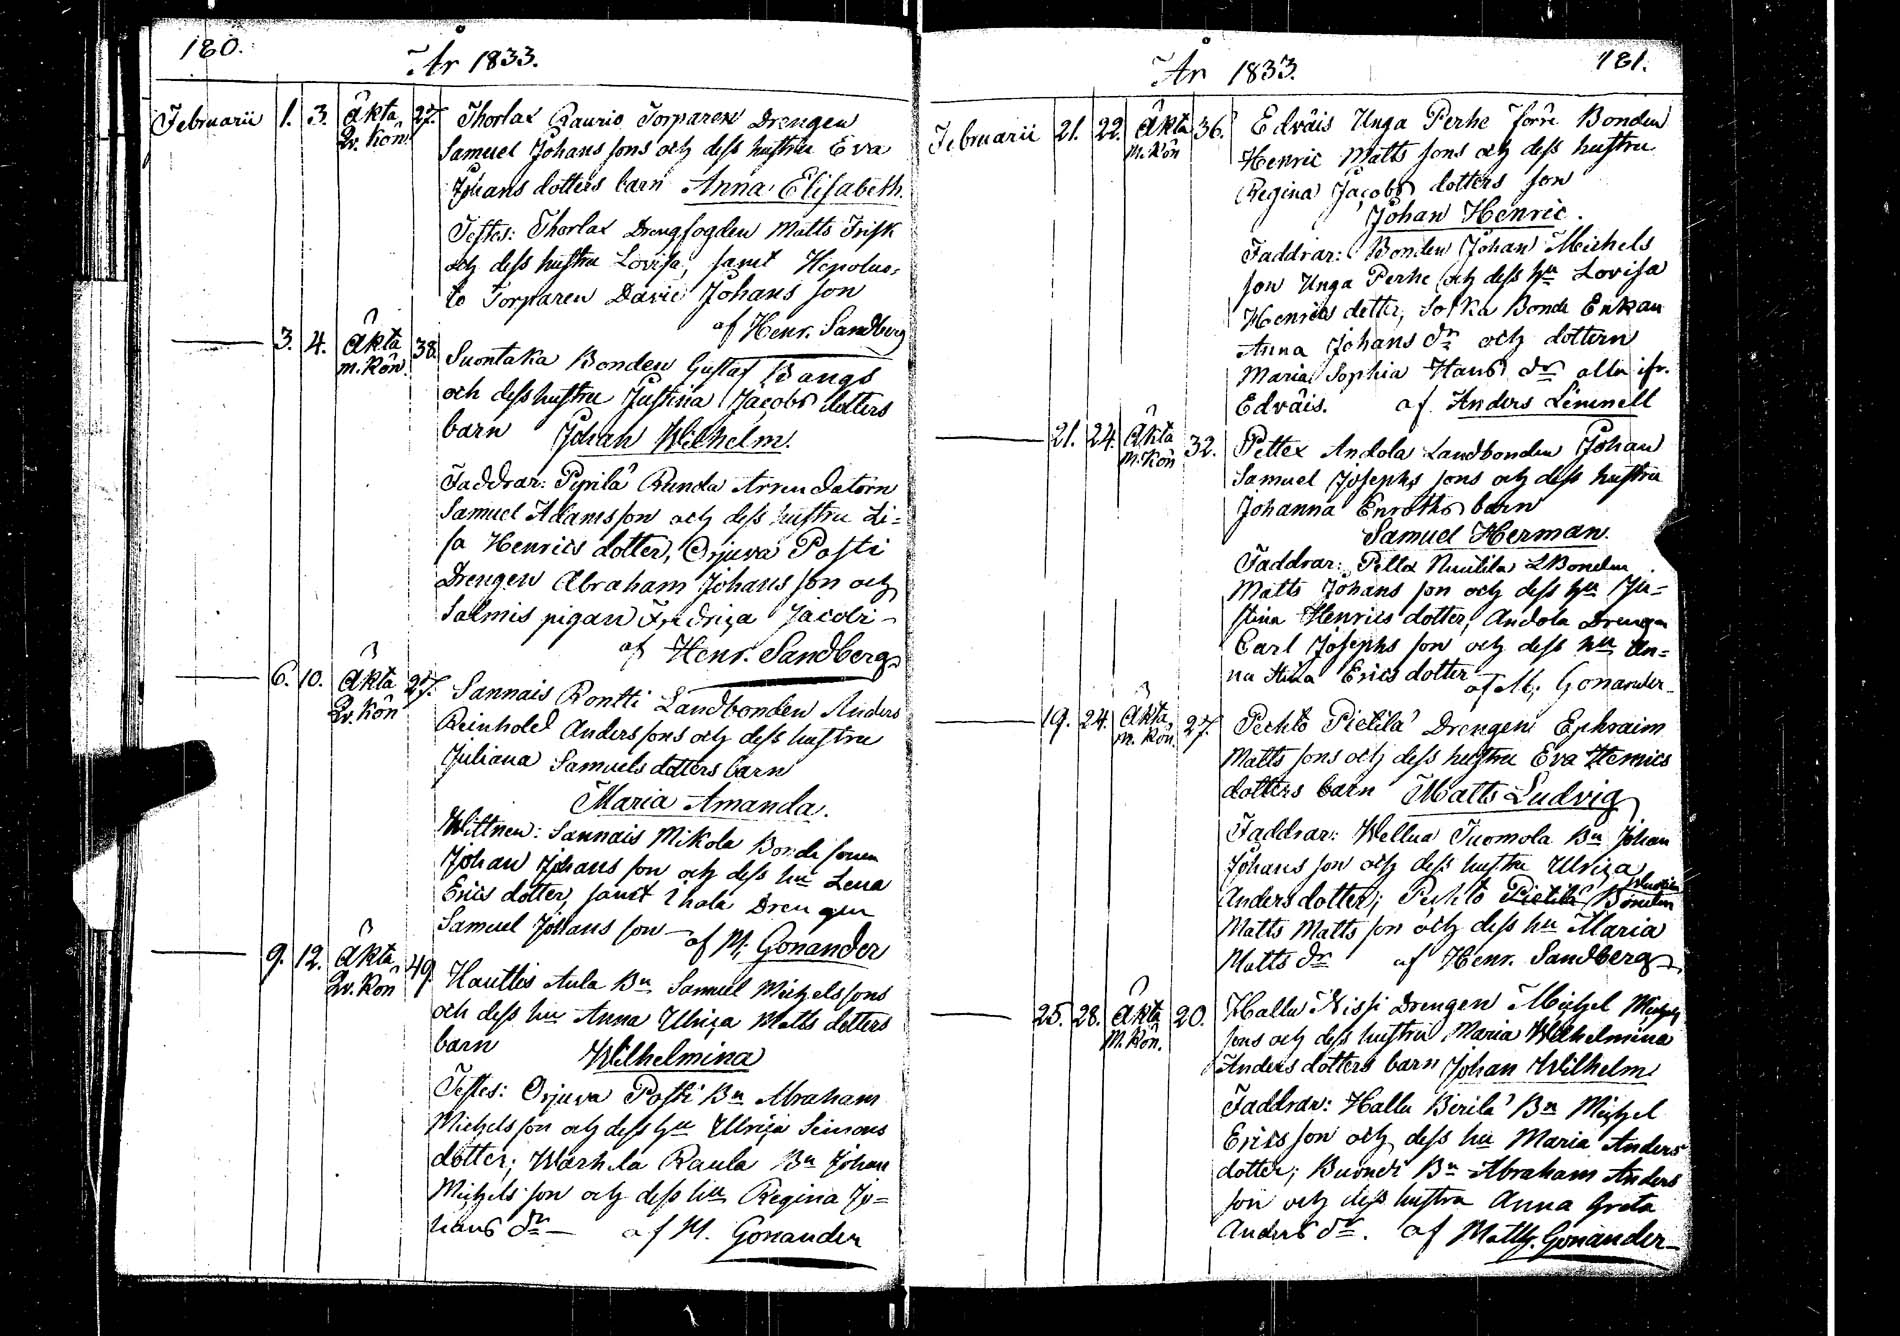 180.
År 1833.
Februarii 1. 3. Äkta Qv. Kön 27. Thorlax Raurio Torparen Drengen
Samuel Johans sons och dess hustru Eva
Johans dotters barn Anna Elisabeth.
Testes: Thorlax Drengfogden Matts Frisk
och dess hustru Lovisa, samt Hepolus-
to Torparen David Johans son
af Henr. Sandberg
3. 4. Äkta m. Kön 38. Suontaka Bonden Gustaf Bangs
och dess hustru Justina Jacobs dotters
barn Johan Wilhelm.
Faddrar: Pyrilä Runda Arrendatorn
Samuel Adamsson och dess hustru Li=
sa Henrics dotter, Orjuva Posti
Drengen Abraham Johans son och
Salmis pigan Fredrica Jacobi-
af Henr. Sandberg
6. 10. Äkta Qv. Kön 27. Sannais Rontti Landbonden Anders
Reinhold Anders sons och dess hustru
Juliana Samuels dotters barn
Maria Amanda.
Wittnen: Sannais Mikola Bonde sonen
Johan Johans son och dess hu Lena
Erics dotter, samt Ihala Drengen
Samuel Johans son - af M. Gonander
9. 12. Äkta Qv. Kön 49. Hauttis Aula Bn Samuel Michels sons
och dess hu Anna Ulrica Matts dotters
barn Wilhelmina
Testes: Orjuva Posti Bn Abraham
Michels son och dess hu Ulrica Simons
dotter; Warhela Raula Bn Johan
Michels son och dess hu Regina Jo=
hans dr - af M. Gonander
181.
År 1833.
Februarii 21. 22. Äkta M. Kön 36. Edväis Unga Perhe förre Bonden
Henric Matts sons och dess hustru
Regina Jacobs dotters son
Johan Henric.
Faddrar: Bonden Johan Michels
son Unga Perhe och dess hu Lovisa
Henrics dotter, Bonde Enkan
Anna Johans dr och dottern
Maria Sophia Hans dr alla ifr.
Edväis. af Anders Limnell
21. 24. Äkta M. Kön 32. Pettex Andola Landbonden Johan
Samuel Josephs sons och dess hustru
Johanna Enroths barn
Samuel Herman.
Faddrar: LBonden
Matts Johans son och dess hu Ju=
stina Henrics dotter, Andola Drengen
Carl Josephs son och dess hu An=
na Stina Erics dotter af M. Gonander-
19. 24. Äkta m. Kön 27. Pechto Pietilä Drengens Ephraim
Matts sons och dess hustru Eva Henrics
dotters barn Matts Ludvig
Faddrar: Wellua Tuomola Bn Johan
Johans son och dess hustru Ulrica
Anders dotter; Pechto Pietilä Bonden
Matts Matts son och dess hu Maria
Matts dr af Henr. Sandberg
25. 28. Äkta M. Kön. 20. Hallu Nissi Drengen Michel Michels
sons och dess hustru Maria Wilhelmina
Anders dotters barn Johan Wilhelm
Faddrar: Hallu Birilä Bn Michel
Erics son och dess hu Maria Anders
dotter; Bn Abraham Anders
son och dess hustru Anna Greta
Anders dr. af Matth. Gonander-